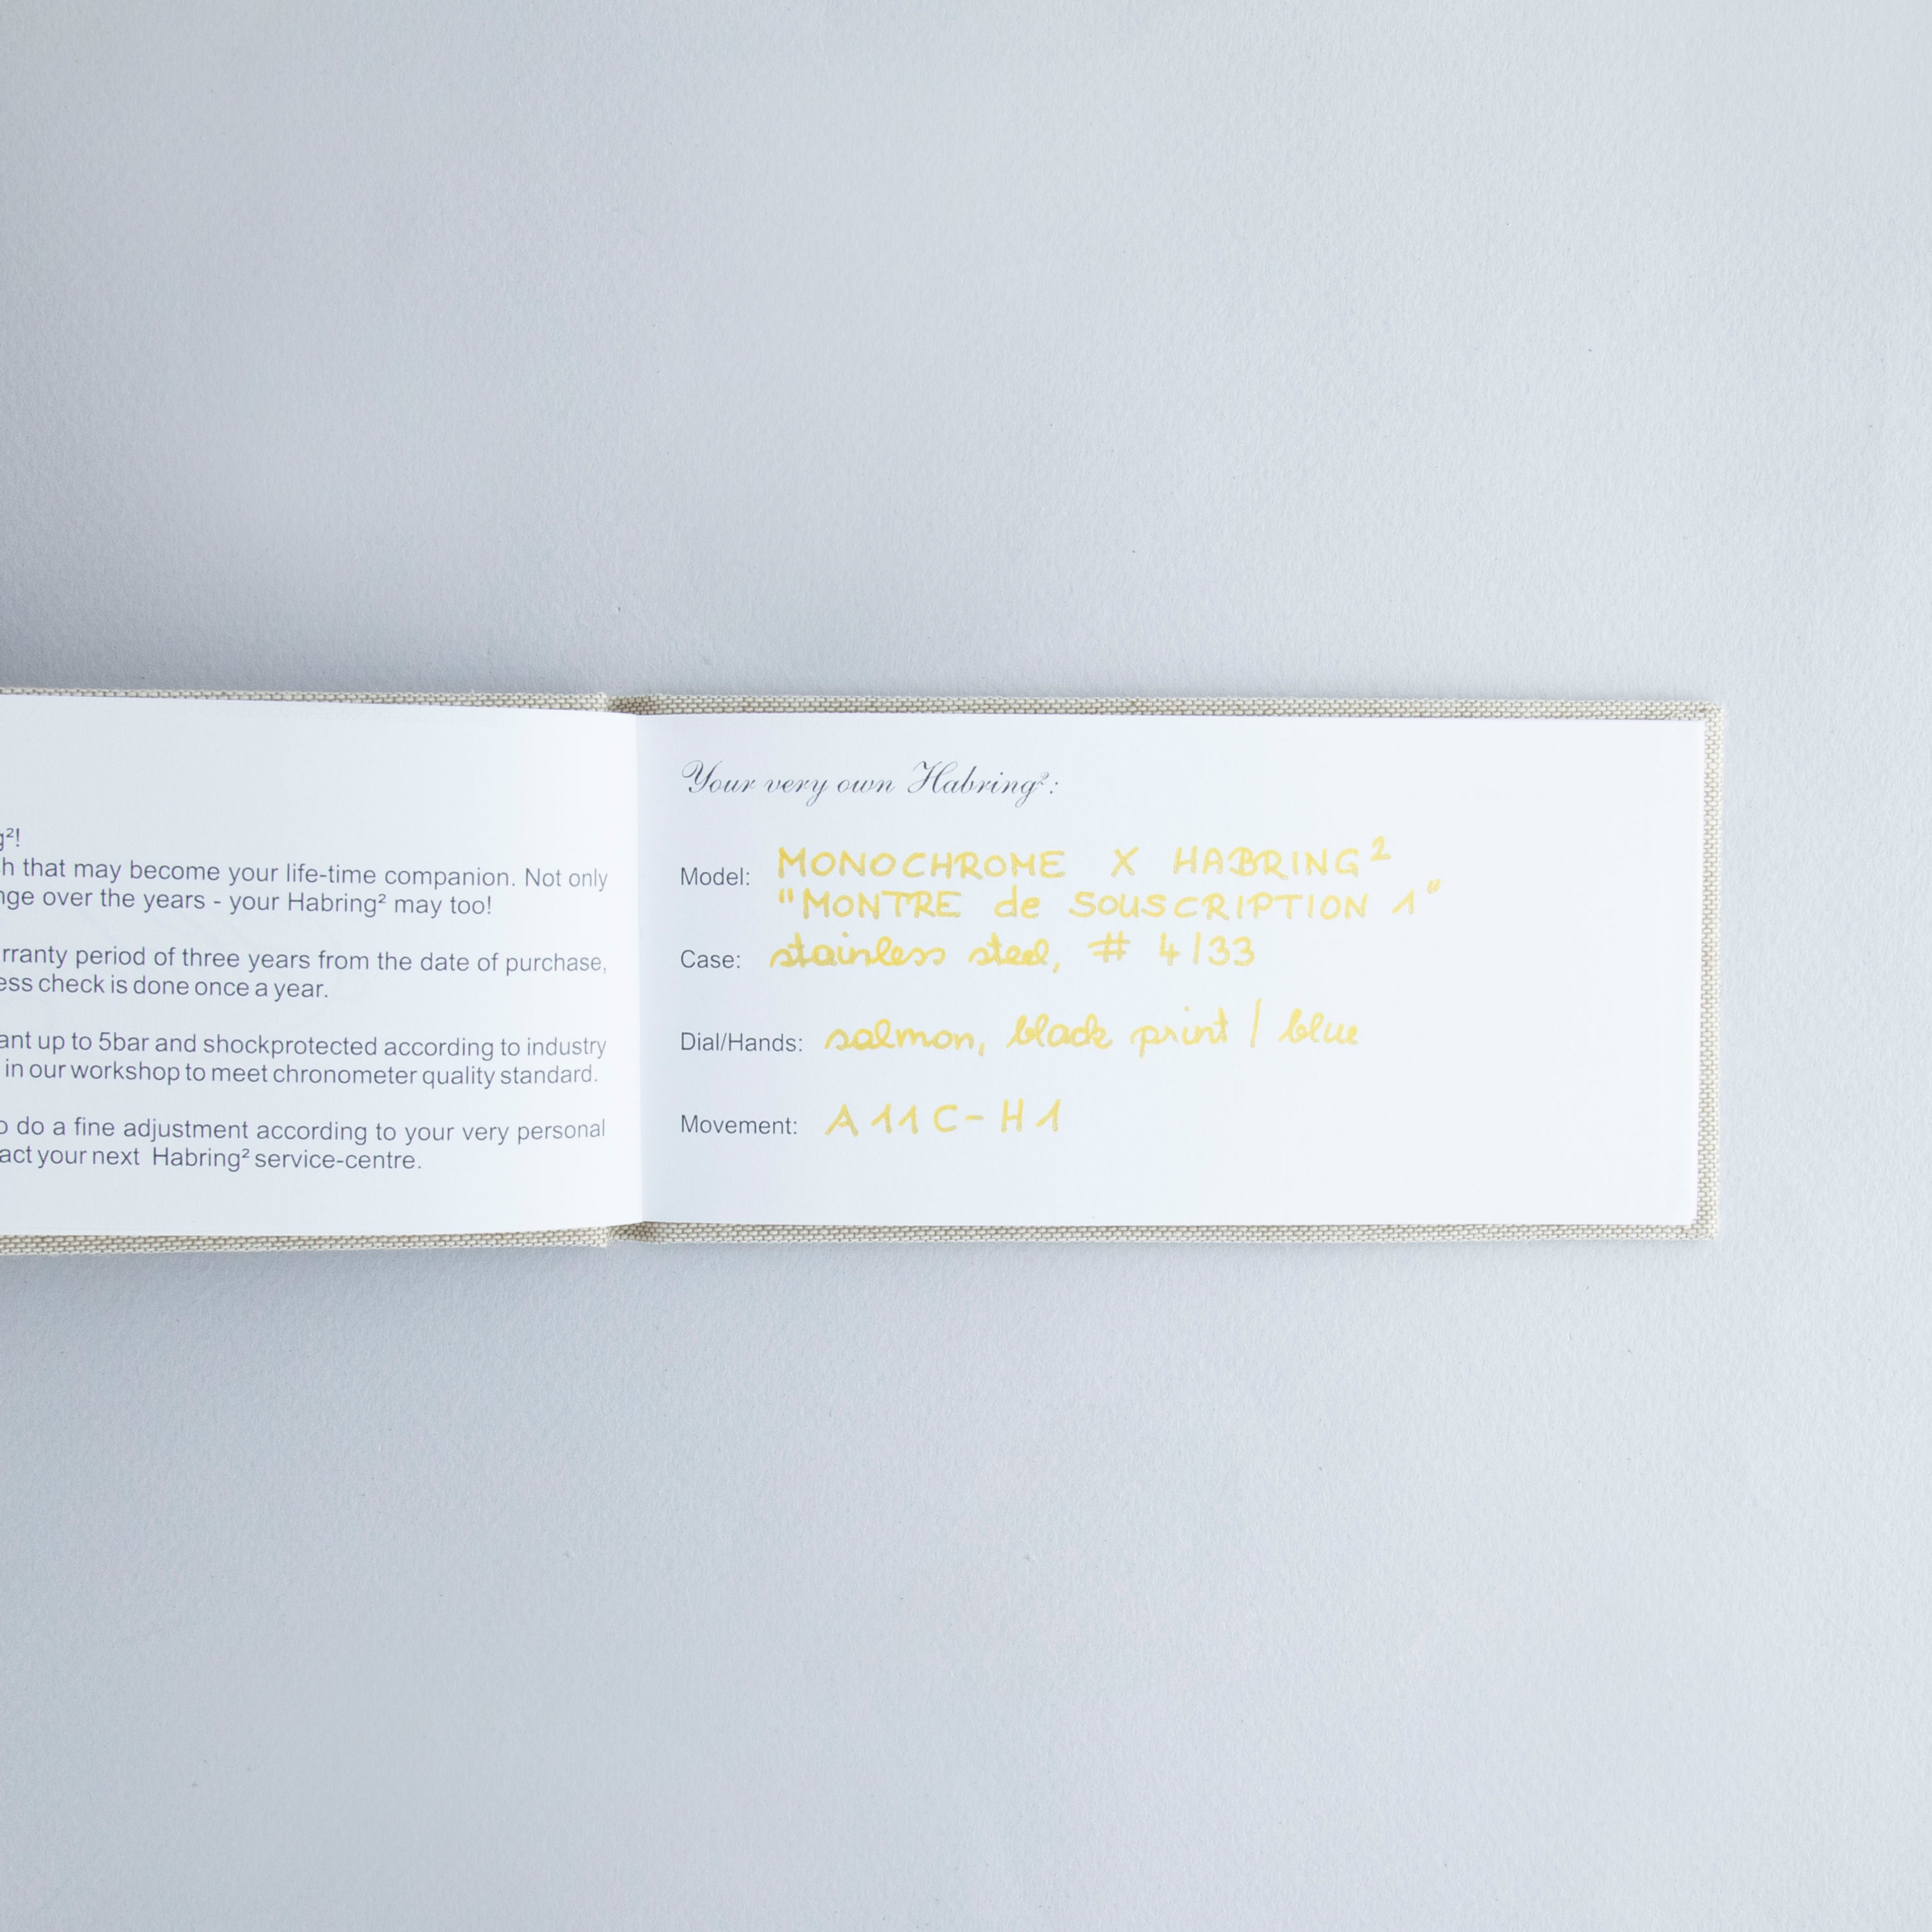 g²!
h that may become your life-time companion. Not only
nge over the years - your Habring² may too!
rranty period of three years from the date of purchase,
ess check is done once a year.
ant up to 5bar and shockprotected according to industry
in our workshop to meet chronometer quality standard.
o do a fine adjustment according to your very personal
act your next Habring² service-centre.
Your very own Habring²:
Model: MONOCHROME X HABRING²
"MONTRE de SOUSCRIPTION 1"
Case: stainless steel, # 4/33
Dial/Hands: salmon, black print / blue
Movement: A11C-H1